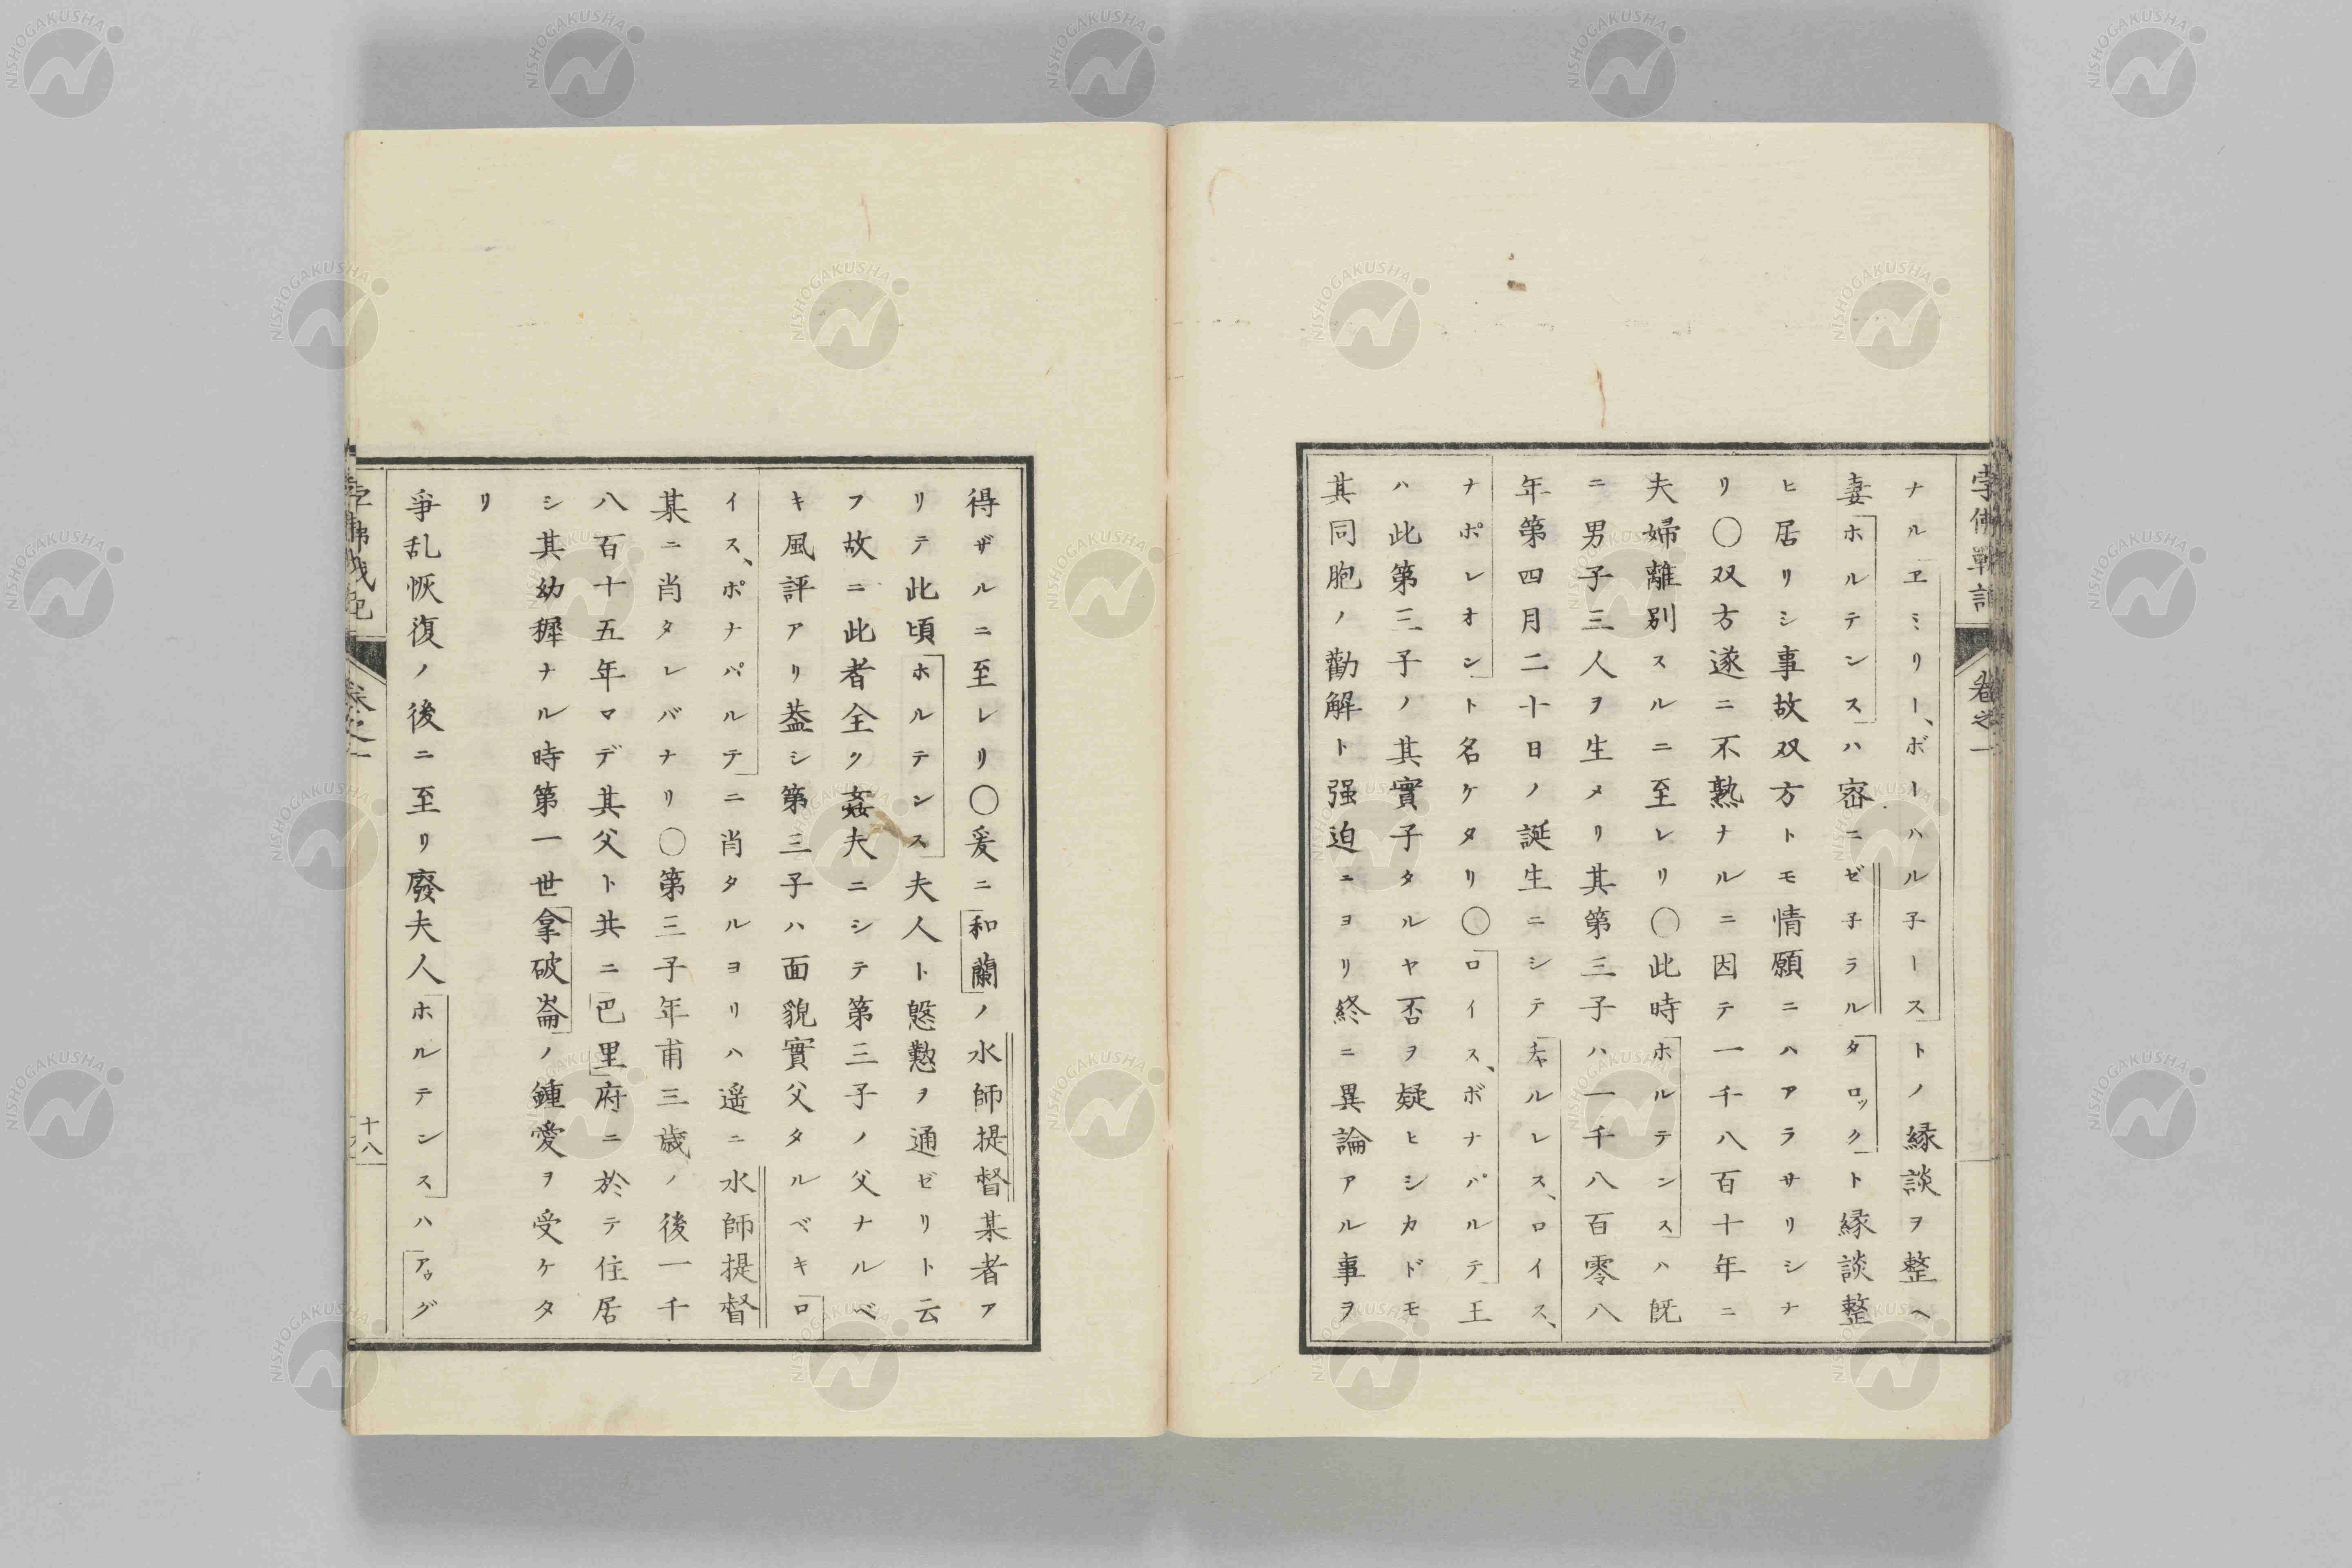 孛佛戰記
卷之一
ナルヱミリー、ボーハル子ーストノ縁談ヲ整ヘ
妻ホルテンスハ密ニゼ子ラルタロックト縁談整
ヒ居リシ事故双方トモ情願ニハアラサリシナ
リ〇双方遂ニ不熟ナルニ因テ一千八百十年ニ
夫婦離別スルニ至レリ〇此時ホルテンスハ既
ニ男子三人ヲ生メリ其第三子ハ一千八百零八
年第四月二十日ノ誕生ニシテチャルレス、ロイス、
ナポレオント名ケタリ〇ロイス、ボナパルテ王
ハ此第三子ノ其實子タルヤ否ヲ疑ヒシカドモ
其同胞ノ勸解ト强迫ニヨリ終ニ異論アル事ヲ
得ザルニ至レリ〇爰ニ和蘭ノ水師提督某者ア
リテ此頃ホルテンス夫人ト慇懃ヲ通ゼリト云
フ故ニ此者全ク姦夫ニシテ第三子ノ父ナルベ
キ風評アリ葢シ第三子ハ面貌實父タルベキロ
イス、ポナパルテニ肖タルヨリハ遥ニ水師提督
某ニ肖タレバナリ〇第三子年甫三歳ノ後一千
八百十五年マデ其父ト共ニ巴里府ニ於テ住居
シ其幼穉ナル時第一世拿破崙ノ鍾愛ヲ受ケタ
リ
爭乱恢復ノ後ニ至リ廢夫人ホルテンスハアゥグ
孛佛戰記
卷之一
十八
NISHOGAKUSHA